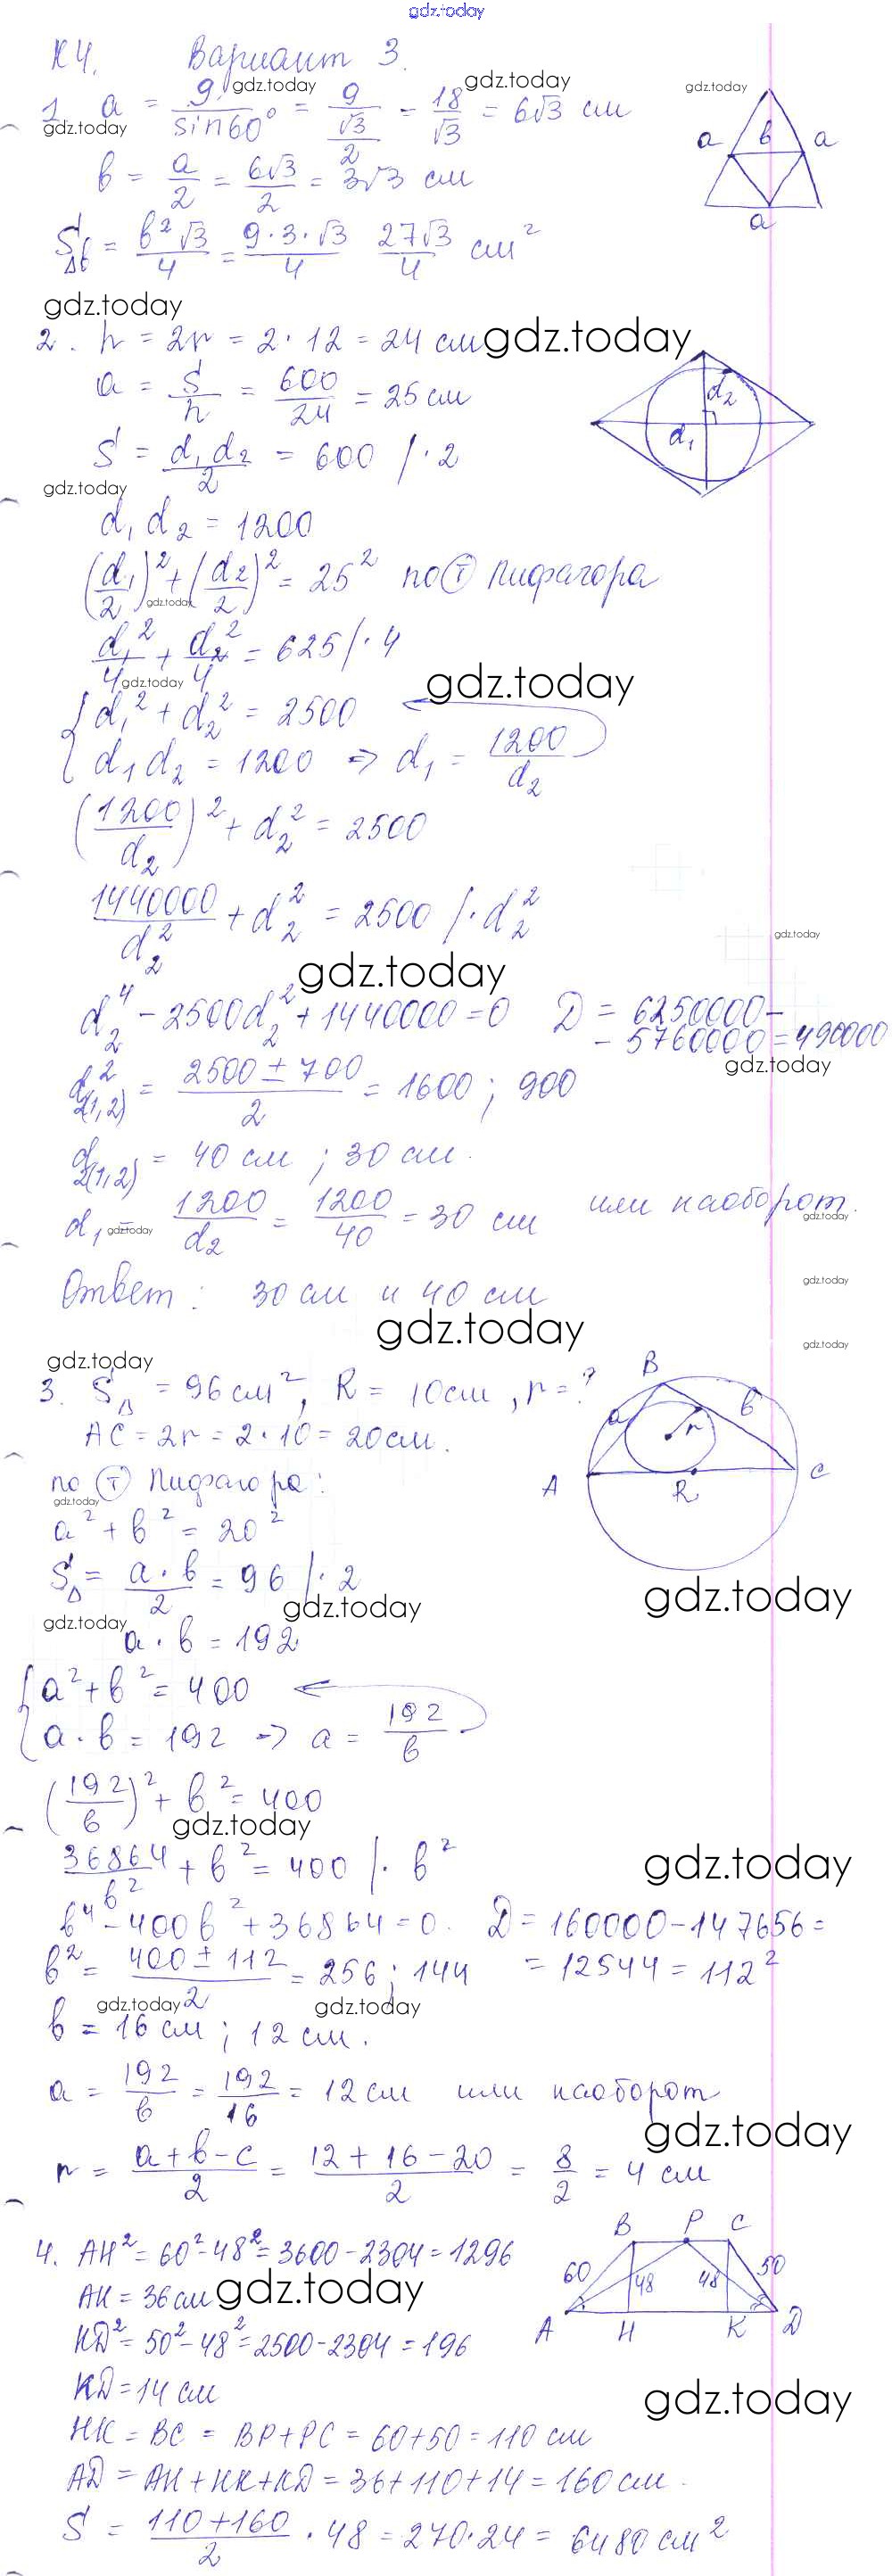 gdz.today
К4. Вариант 3.
1. a = 9/sin60° = 9/(√3/2) = 18/√3 = 6√3 см
b = a/2 = 6√3/2 = 3√3 см
S△b = b²√3/4 = 9·3·√3/4 27√3/4 см²
a b a
a
2. h = 2r = 2·12 = 24 см
a = S/h = 600/24 = 25 см
S = d₁d₂/2 = 600 /·2
d₂
d₁
d₁d₂ = 1200
(d₁/2)² + (d₂/2)² = 25² по Т Пифагора
d₁²/4 + d₂²/4 = 625 /·4
{ d₁² + d₂² = 2500
d₁d₂ = 1200 => d₁ = 1200/d₂
(1200/d₂)² + d₂² = 2500
1440000/d₂² + d₂² = 2500 /·d₂²
d₂⁴ - 2500d₂² + 1440000 = 0 D = 6250000 -
- 5760000 = 490000
d²₂(1,2) = (2500 ± 700)/2 = 1600 ; 900
d₂(1,2) = 40 см ; 30 см.
d₁ = 1200/d₂ = 1200/40 = 30 см или наоборот.
Ответ: 30 см и 40 см
3. S△ = 96 см², R = 10 см, r = ?
AC = 2r = 2·10 = 20 см.
B
a b
r
A R C
по Т Пифагора:
a² + b² = 20²
S△ = a·b/2 = 96 /·2
a·b = 192
{ a² + b² = 400
a·b = 192 => a = 192/b
(192/b)² + b² = 400
36864/b² + b² = 400 /·b²
b⁴ - 400b² + 36864 = 0. D = 160000 - 147656 =
b² = (400 ± 112)/2 = 256 ; 144 = 12544 = 112²
b = 16 см ; 12 см.
a = 192/b = 192/16 = 12 см или наоборот
r = (a + b - c)/2 = (12 + 16 - 20)/2 = 8/2 = 4 см
4. AH² = 60² - 48² = 3600 - 2304 = 1296
AH = 36 см
KD² = 50² - 48² = 2500 - 2304 = 196
KD = 14 см
B P C
60 48 48 50
A H K D
HK = BC = BP + PC = 60 + 50 = 110 см
AD = AH + HK + KD = 36 + 110 + 14 = 160 см.
S = (110 + 160)/2 · 48 = 270·24 = 6480 см²